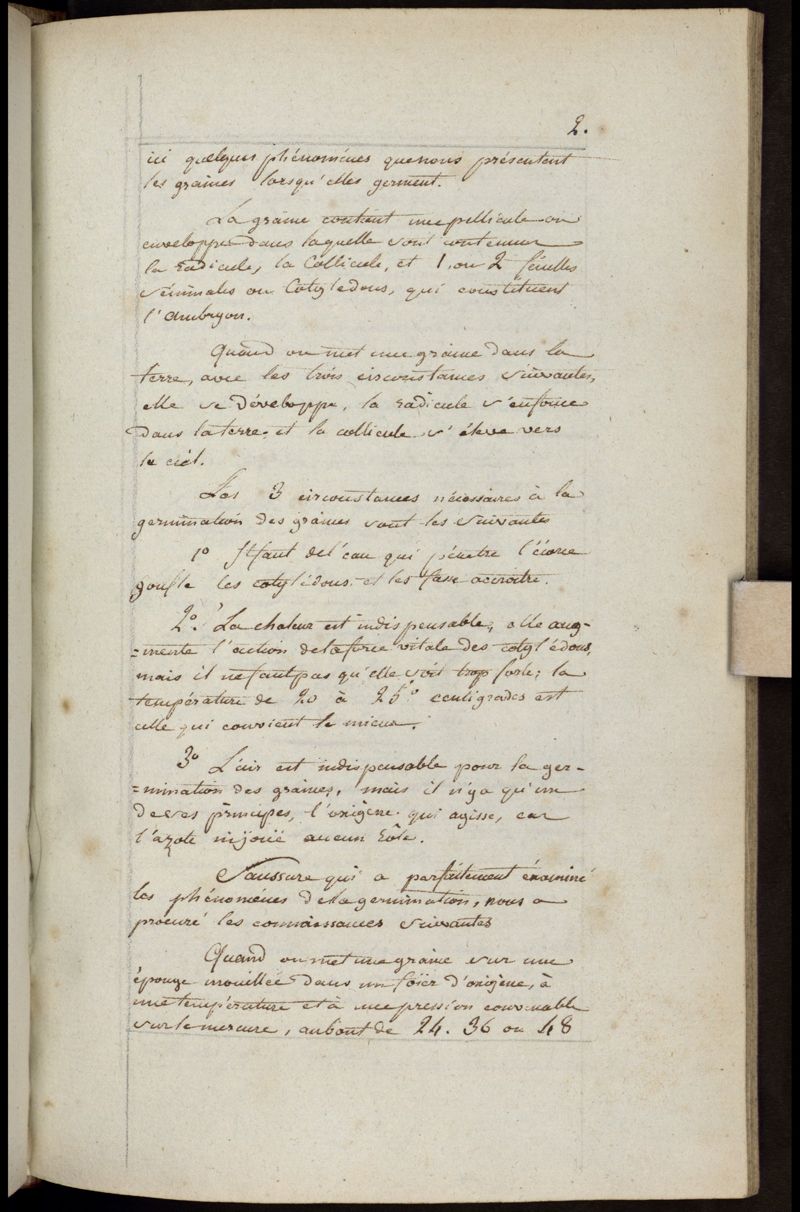 2.
ici quelques phénomènes que nous présentent
les graines lorsqu'elles germent.
La graine contient une pellicule ou
enveloppe dans laquelle sont contenues
la Radicule, la Collicule, et 1. ou 2 feuilles
séminales ou Cotylédons, qui constituent
l'ambryon.
Quand on met une graine dans la
terre, avec les trois circonstances suivantes,
elle se développe, la radicule s'enfonce
dans la terre et la collicule s'élève vers
le ciel.
Les 3 circonstances nécessaires à la
germination des graines sont les suivantes
1º Il faut de l'eau qui pénètre l'écorce
gonfle les cotylédons et les fasse accroitre.
2º. La chaleur est indispensable, elle aug-
=mente l'action de la force vitale des cotylédons,
mais il ne faut pas qu'elle soit trop forte; la
température de 20 à 25º centigrades est
celle qui convient le mieux.
3º L'air est indispensable pour la ger-
=mination des graines, mais il n'y a qu'un
de ses principes, l'oxigène qui agisse, car
l'azote n'joue aucun rôle.
Saussure qui a parfaitement éxaminé
les phénomènes de la germination, nous a
procuré les connaissances suivantes
Quand on met une graine sur une
éponge mouillée dans un d'oxigène, à
une température et à une pression convenable
sur le mercure, au bout de 24. 36 ou 48